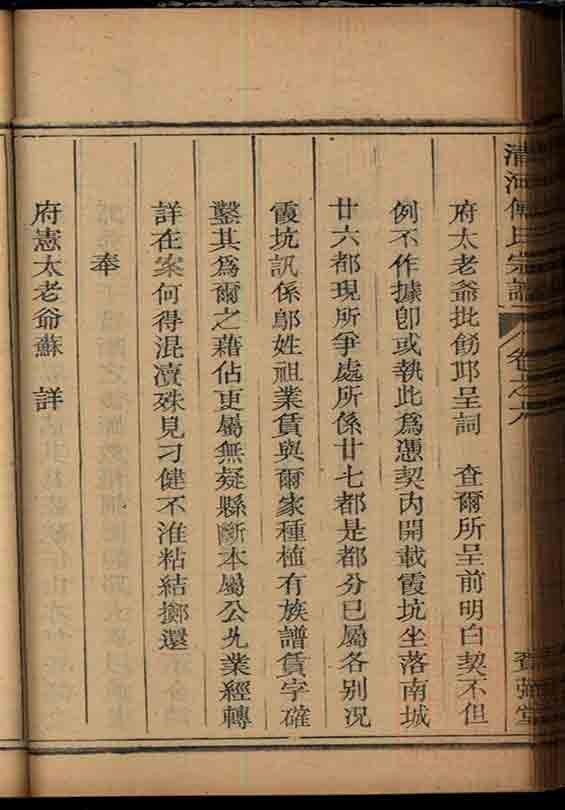 清河傅氏宗譜 卷之六
府太老爺批飭邱呈詞 查爾所呈前明白契不但
例不作據卽或執此爲憑契內開載霞坑坐落南城
廿六都現所爭處所係廿七都是都分已屬各别況
霞坑訊係鄔姓祖業賃與爾家種植有族譜賃字確
鑿其爲爾之藉佔更屬無疑縣斷本屬公允業經轉
詳在案何得混瀆殊見刁健不淮粘結擲還
奉
府憲太老爺蘇 詳